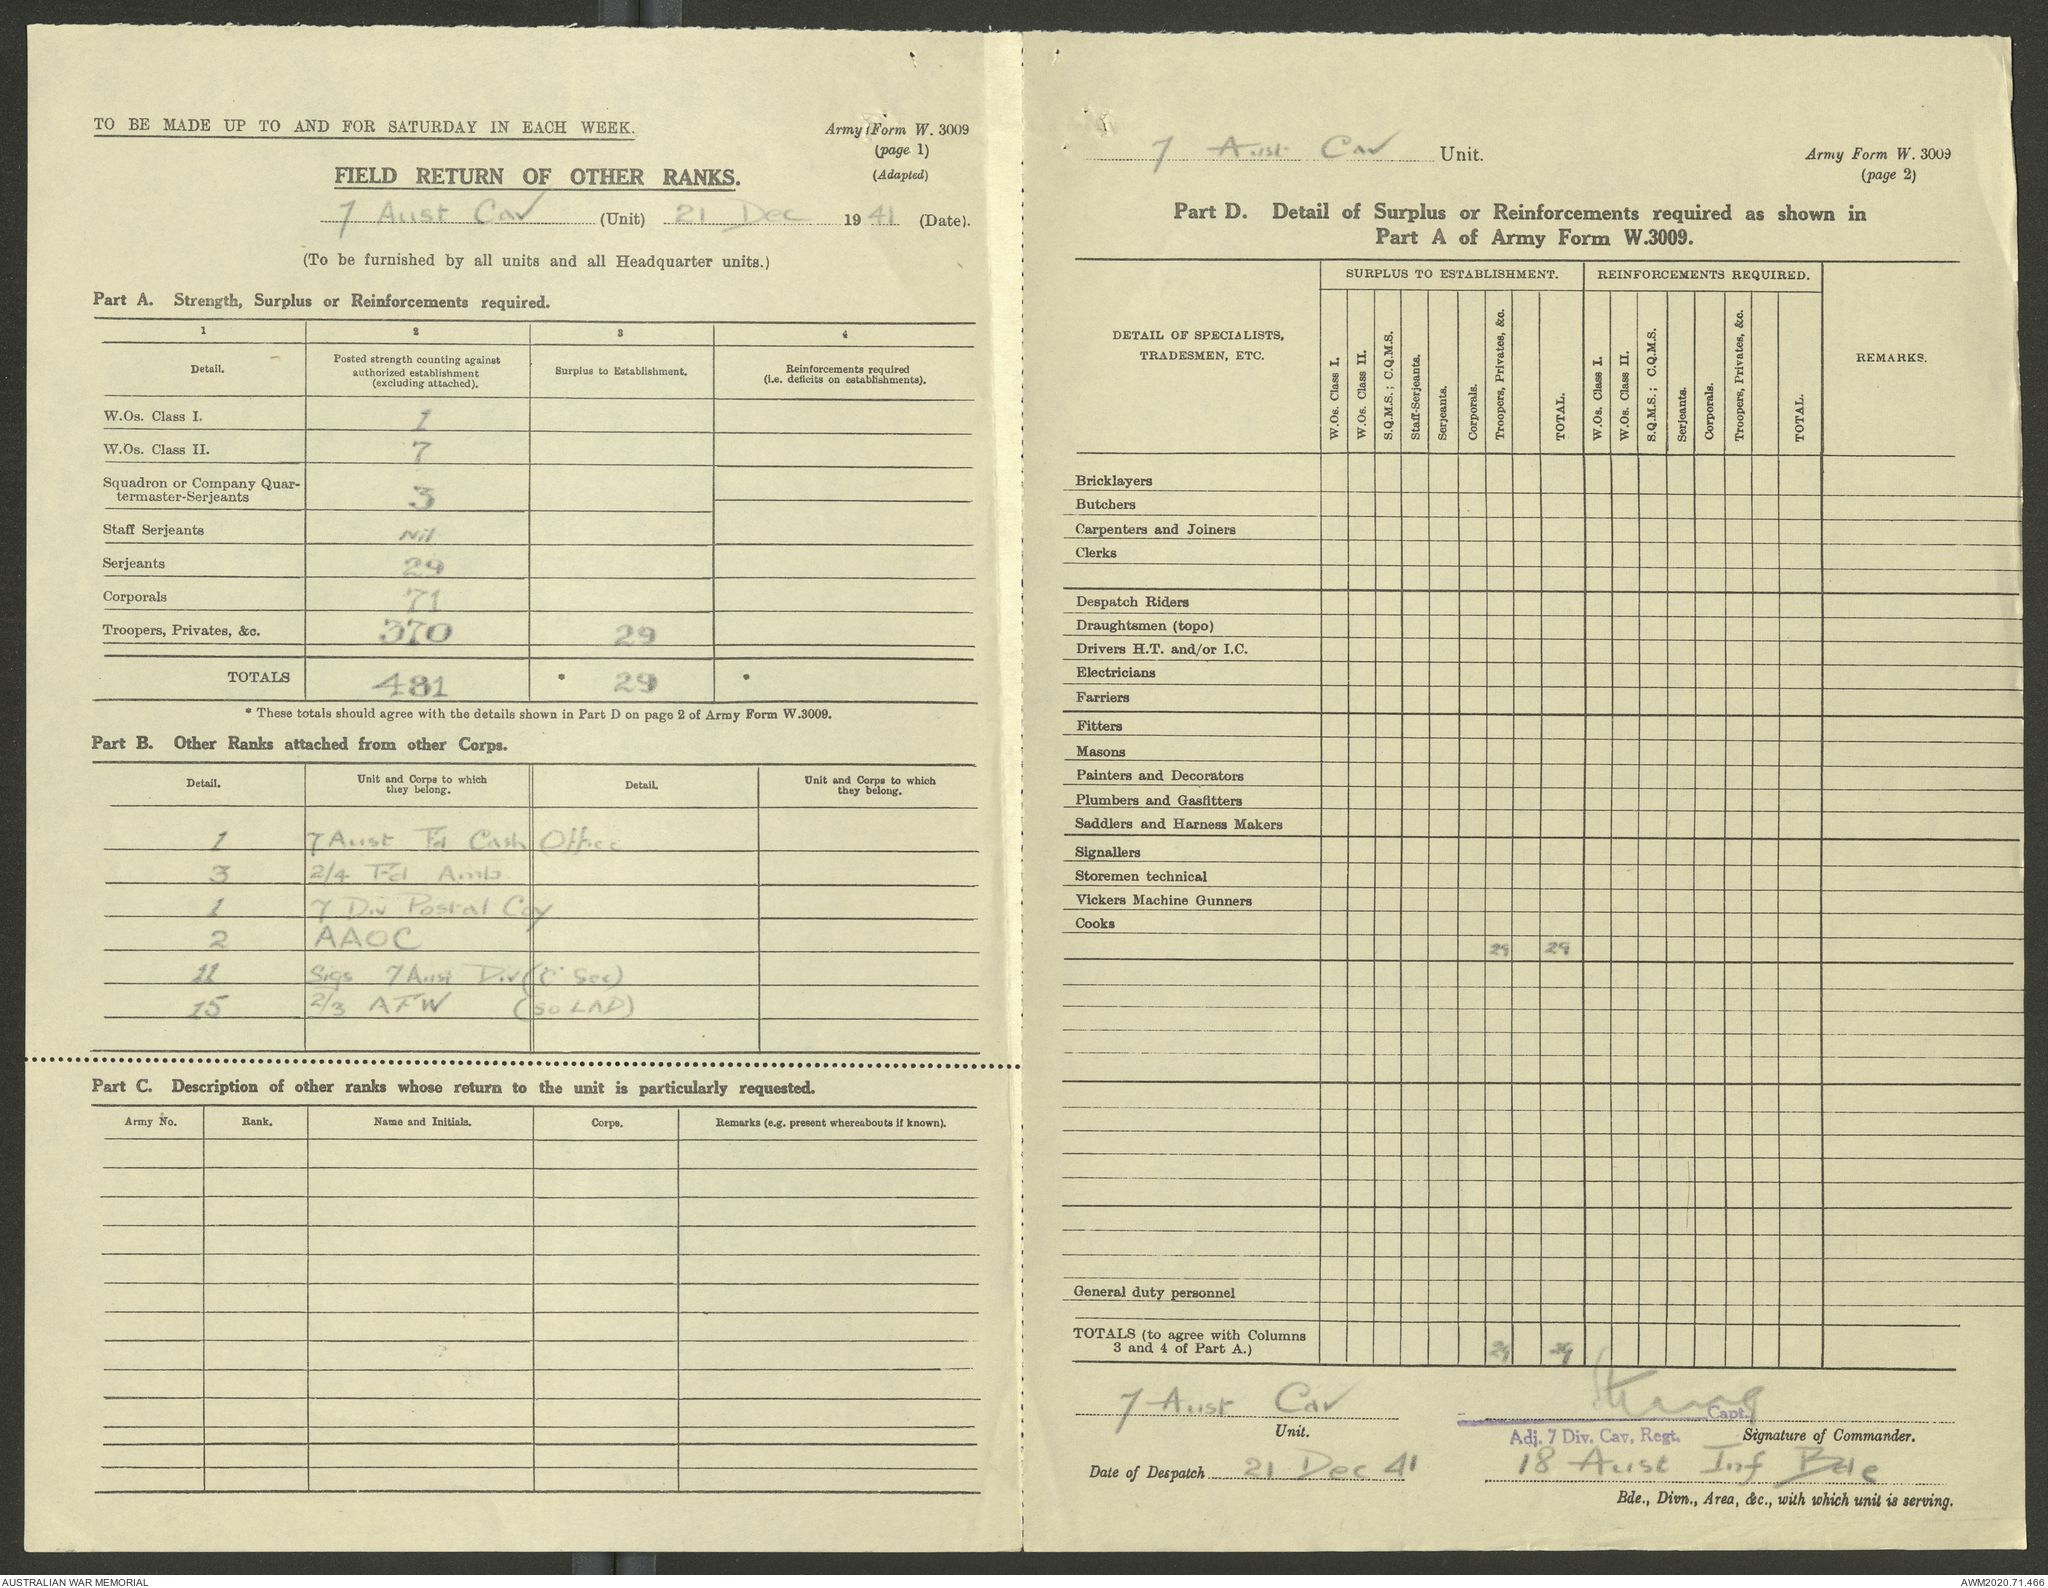 TO BE MADE UP TO AND FOR SATURDAY IN EACH WEEK.
Army Form W. 3009
(page 1)
(Adapted)
FIELD RETURN OF OTHER RANKS.
7 Aust Cav (Unit) 21 Dec 1941 (Date).
(To be furnished by all units and all Headquarter units.)
Part A. Strength, Surplus or Reinforcements required.
1 2 3 4
Detail. Posted strength counting against authorized establishment (excluding attached). Surplus to Establishment. Reinforcements required (i.e. deficits on establishments).
W.Os. Class I. 1
W.Os. Class II. 7
Squadron or Company Quar-
termaster-Serjeants 3
Staff Serjeants Nil
Serjeants 29
Corporals 71
Troopers, Privates, &c. 370 29
TOTALS 481 * 29 *
* These totals should agree with the details shown in Part D on page 2 of Army Form W.3009.
Part B. Other Ranks attached from other Corps.
Detail. Unit and Corps to which they belong. Detail. Unit and Corps to which they belong.
1 7 Aust Fd Cash Office
3 2/4 Fd Amb
1 7 Div Postal Coy
2 AAOC
11 Sigs 7 Aust Div (C Sec)
15 2/3 AFW (50 LAD)
Part C. Description of other ranks whose return to the unit is particularly requested.
Army No. Rank. Name and Initials. Corps. Remarks (e.g. present whereabouts if known).
7 Aust Cav Unit.
Army Form W. 3009
(page 2)
Part D. Detail of Surplus or Reinforcements required as shown in
Part A of Army Form W.3009.
SURPLUS TO ESTABLISHMENT. REINFORCEMENTS REQUIRED.
DETAIL OF SPECIALISTS,
TRADESMEN, ETC.
W.Os. Class I.
W.Os. Class II.
S.Q.M.S.; C.Q.M.S.
Staff-Serjeants.
Serjeants.
Corporals.
Troopers, Privates, &c.
TOTAL.
W.Os. Class I.
W.Os. Class II.
S.Q.M.S.; C.Q.M.S.
Serjeants.
Corporals.
Troopers, Privates, &c.
TOTAL.
REMARKS.
Bricklayers
Butchers
Carpenters and Joiners
Clerks
Despatch Riders
Draughtsmen (topo)
Drivers H.T. and/or I.C.
Electricians
Farriers
Fitters
Masons
Painters and Decorators
Plumbers and Gasfitters
Saddlers and Harness Makers
Signallers
Storemen technical
Vickers Machine Gunners
Cooks
29 29
General duty personnel
TOTALS (to agree with Columns
3 and 4 of Part A.) 29 29
7 Aust Cav
Unit.
Capt.
Adj. 7 Div. Cav. Regt. Signature of Commander.
Date of Despatch 21 Dec 41
18 Aust Inf Bde
Bde., Divn., Area, &c., with which unit is serving.
AUSTRALIAN WAR MEMORIAL
AWM2020.71.466